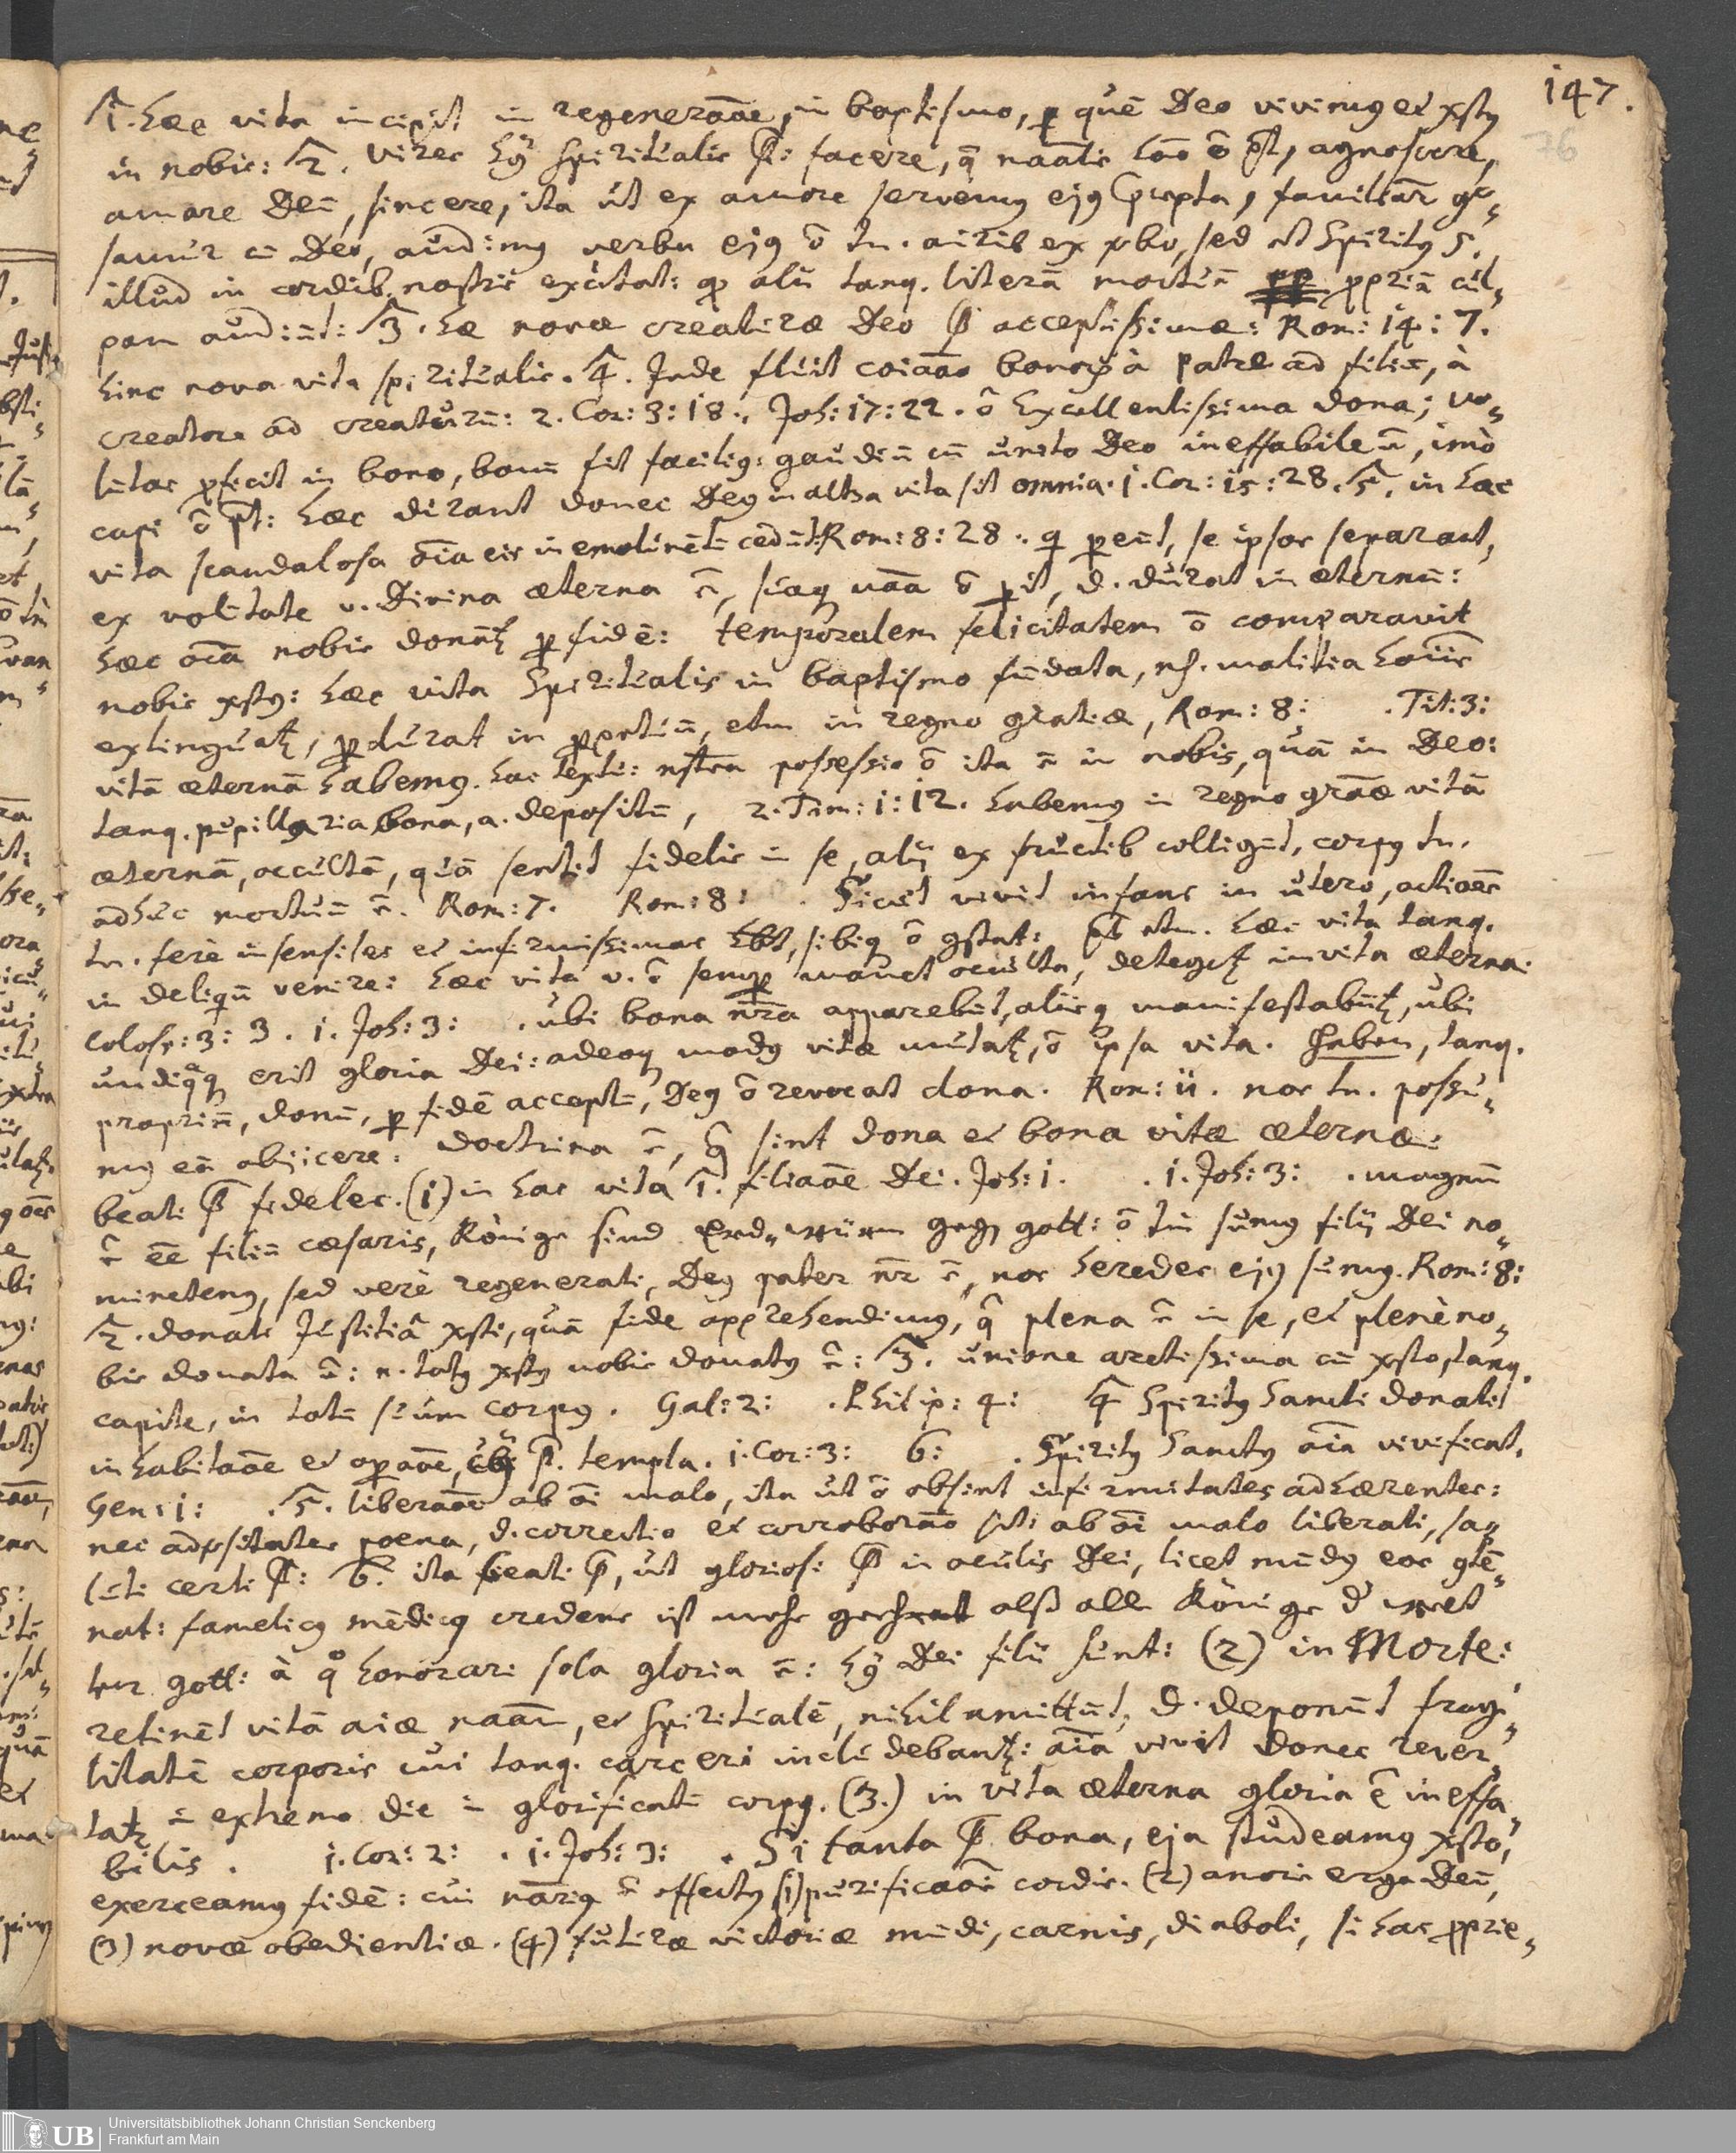 147.
76
1. Hæc vita incipit in regeneraõe, in baptismo, p quẽ Deo vivimus et xstus
in nobis: 2. vires hujus Spiritualis st: facere, q̃ naãlis hõo õ pt, agnoscere,
amare Deũ, sincere, ita ut ex amore servemus ejus præcepta, familiãr
samur cũ Deo, audimus verbu ejus õ tn. ex vbo, sed et Spiritus S.
illud in cordib. nostris excitat: alii tanq. literã mortũ ppriã cul„
pam audiũt: 3. Hæ novæ creaturæ Deo st acceptissimæ: Rom: 14: 7.
hinc nova vita spiritualis. 4. Inde fluit coiaõo bonorum à patre ad filiũ, à
creatore ad creaturã: 2. Cor: 3: 18., Joh: 17: 22. õ Excellentissima dona; vo„
lũtas pficit in bono, bonũ fit facilius: gaudiũ cũ unito Deo ineffabile ẽ, imò
capi õ pt: hæc durant donec Deus in altra vita sit omnia. 1. Cor: 15: 28. 5. in hac
vita scandalosa oĩa eis in emolumẽtũ cedũt Rom: 8: 28., q peũt, se ipsos separant,
ex volũtate v. Divina æterna ẽ, õ pit, d. durat in æternũ:
hæc oĩa nobis donãtur p fidẽ: temporalem felicitatem õ comparavit
nobis xstus: hæc vita Spiritualis in baptismo fũdata, malitia hoĩis
extinguatur, pdurat in ppetũ, etm in regno gratiæ, Rom: 8: . Tit: 3:
vitã æternã habemus. hac textu: nstra possessio õ ita ẽ in nobis, quã in Deo:
tanq. pupillaria bona, a. depositũ, 2. Tim: 1: 12. habemus in regno grãæ vitã
æternã, occultã, quã sentit fidelis in se, alij ex fructib colligũt, corpus tn.
adhuc mortuũ ẽ. Rom: 7. Rom: 8: . Sicut vivit infans in utero, actiões
tn. ferè insensiles et infirmissimas hbt, sibiq õ gstat: pt etm. hæc vita tanq.
in deliquũ venire: hæc vita v. õ semp manet occulta, detegetur in vita æterna.
Coloss: 3: 3. 1. Joh: 3: . ubi bona nr̃a apparebũt, aliisq manifestabũtur, ubi
undiq̃q erit gloria Dei: adeoq modus vitæ mutatur, õ ipsa vita. Haben, tanq.
propriũ, donũ, p fidẽ acceptũ, Deus õ revocat dona. Rom: 11. nos tn. possu„
mus eã abjicere: doctrina ẽ, sint dona et bona vitæ æternæ:
beati st fideles. (1) in hac vita 1. filiaõe Dei. Joh: 1. . 1. Joh: 3: . magnũ
ẽ eẽ filiũ cæsaris, Könige sind Erd„würm gegen gott: õ tm̃ sumus filij Dei no„
minetenus, sed verè regenerati, Deus pater nr̃ ẽ, nos heredes ejus sumus. Rom: 8:
2. donati Justitiâ xsti, quã fide apprehendimus, q̃ plena ẽ in se, et plenè no„
bis donata ẽ: n. totus xstus nobis donatus ẽ: 3. unione arctissima cũ xsto, tanq.
capite, in totũ suum corpus. Gal: 2: . Philip: 4: 4 Spiritus Sancti donati
inhabitaõe et opaõe, st. templa. 1. Cor: 3: 6: . Spiritus Sanctus oĩa vivificat,
Gen: 1: . 5. liberaõe ab oĩ malo, ita ut õ obsint infirmitates adhærentes:
nec advsitates poena, d. correctio et corroboraõo sũt: ab oĩ malo liberati, sa„
lũti certi st: 6. ita beati st, ut gloriosi st in oculis Dei, licet mũdus eos gtẽ„
nat: famelicus mẽdicus credens ist mehr geehret alß alle Könige d welt
vor gott: à quo honorari sola gloria ẽ: hij Dei filii sunt: (2) in Morte:
retinẽt vitã aiæ naãm, et Spiritualẽ, nihil amittũt, d. deponũt fragi„
litatẽ corporis cui tanq. carceri includebantur: aĩa vivit donec rever„
tatur ĩ extremo die ĩ glorificatũ corpus. (3.) in vita æterna gloria ẽ ineffa„
bilis. 1. Cor: 2: . 1. Joh: 3: . Si tanta st bona, eja studeamus xsto,
exerceamus fidẽ: cui nãrius ẽ effectus (1) purificaõis cordis. (2) amoris erga Deũ,
(3) novæ obedientiæ. (4) futuræ victoriæ mũdi, carnis, diaboli, si hac pprie„
UB Universitätsbibliothek Johann Christian Senckenberg
Frankfurt am Main